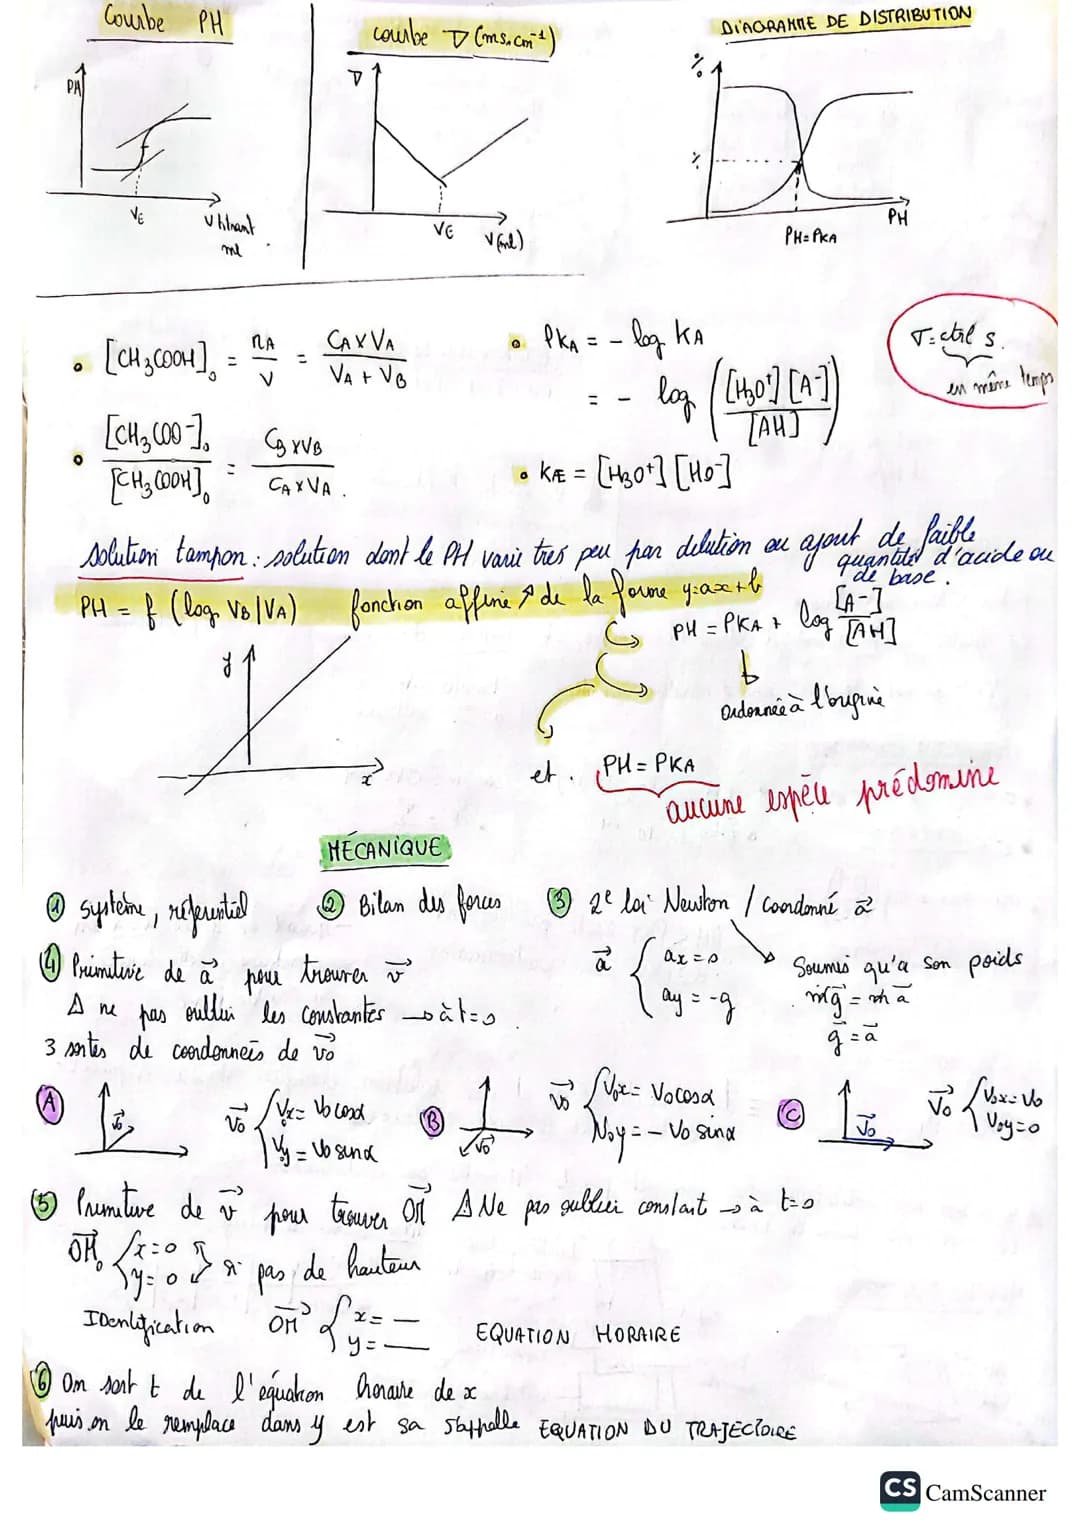 Courbe PH
PH
VE
V titrant
ml
courbe ∇ (ms.cm⁻¹)
∇
VE
V (ml)
DIAGRAMME DE DISTRIBUTION
%
%
PH=PKA
PH
• [CH₃COOH]₀ = nA/V = CA×VA / VA+VB
• [CH₃COO⁻]₀ / [CH₃COOH]₀ = CB×VB / CA×VA .
• PKA = - log KA
= - log ([H₃O⁺][A⁻] / [AH])
• KÆ = [H₃O⁺][HO⁻]
en même temps
solution tampon : solution dont le PH varie très peu par dilution ou ajout de faible
quantité d'acide ou
de base .
PH = f (log VB/VA) fonction affine ↗ de la forme y=ax+b
PH = PKA + log [A⁻]/[AH]
↓
ordonnée à l'origine
y
x
et . PH = PKA
aucune espèce prédomine
MÉCANIQUE
① système, référentiel ② Bilan des forces ③ 2e loi Newton / Coordonné a⃗
a⃗ { ax=0
ay = -g
Soumis qu'a son poids
mg⃗ = m a⃗
g⃗ = a⃗
④ Primitive de a⃗ pour trouver v⃗
∆ ne pas oublier les constantes → à t=0
3 sortes de coordonnées de v₀⃗
Ⓐ v₀⃗ v₀⃗ { Vx₀= V₀ cosα
Vy₀ = V₀ sinα
Ⓑ v₀⃗ v₀⃗ { V₀x = V₀ cosα
V₀y = - V₀ sinα
Ⓒ v₀⃗ V₀⃗ { V₀x= V₀
V₀y=0
⑤ Primitive de v⃗ pour trouver OM⃗ ∆ Ne pas oublier constant → à t=0
OM₀⃗ { x=0
y=0 } si pas de hauteur
IDentification OM⃗ { x= —
y= — EQUATION HORAIRE
⑥ On sort t de l'équation horaire de x
puis on le remplace dans y est sa s'appelle EQUATION DU TRAJECTOIRE
CS CamScanner